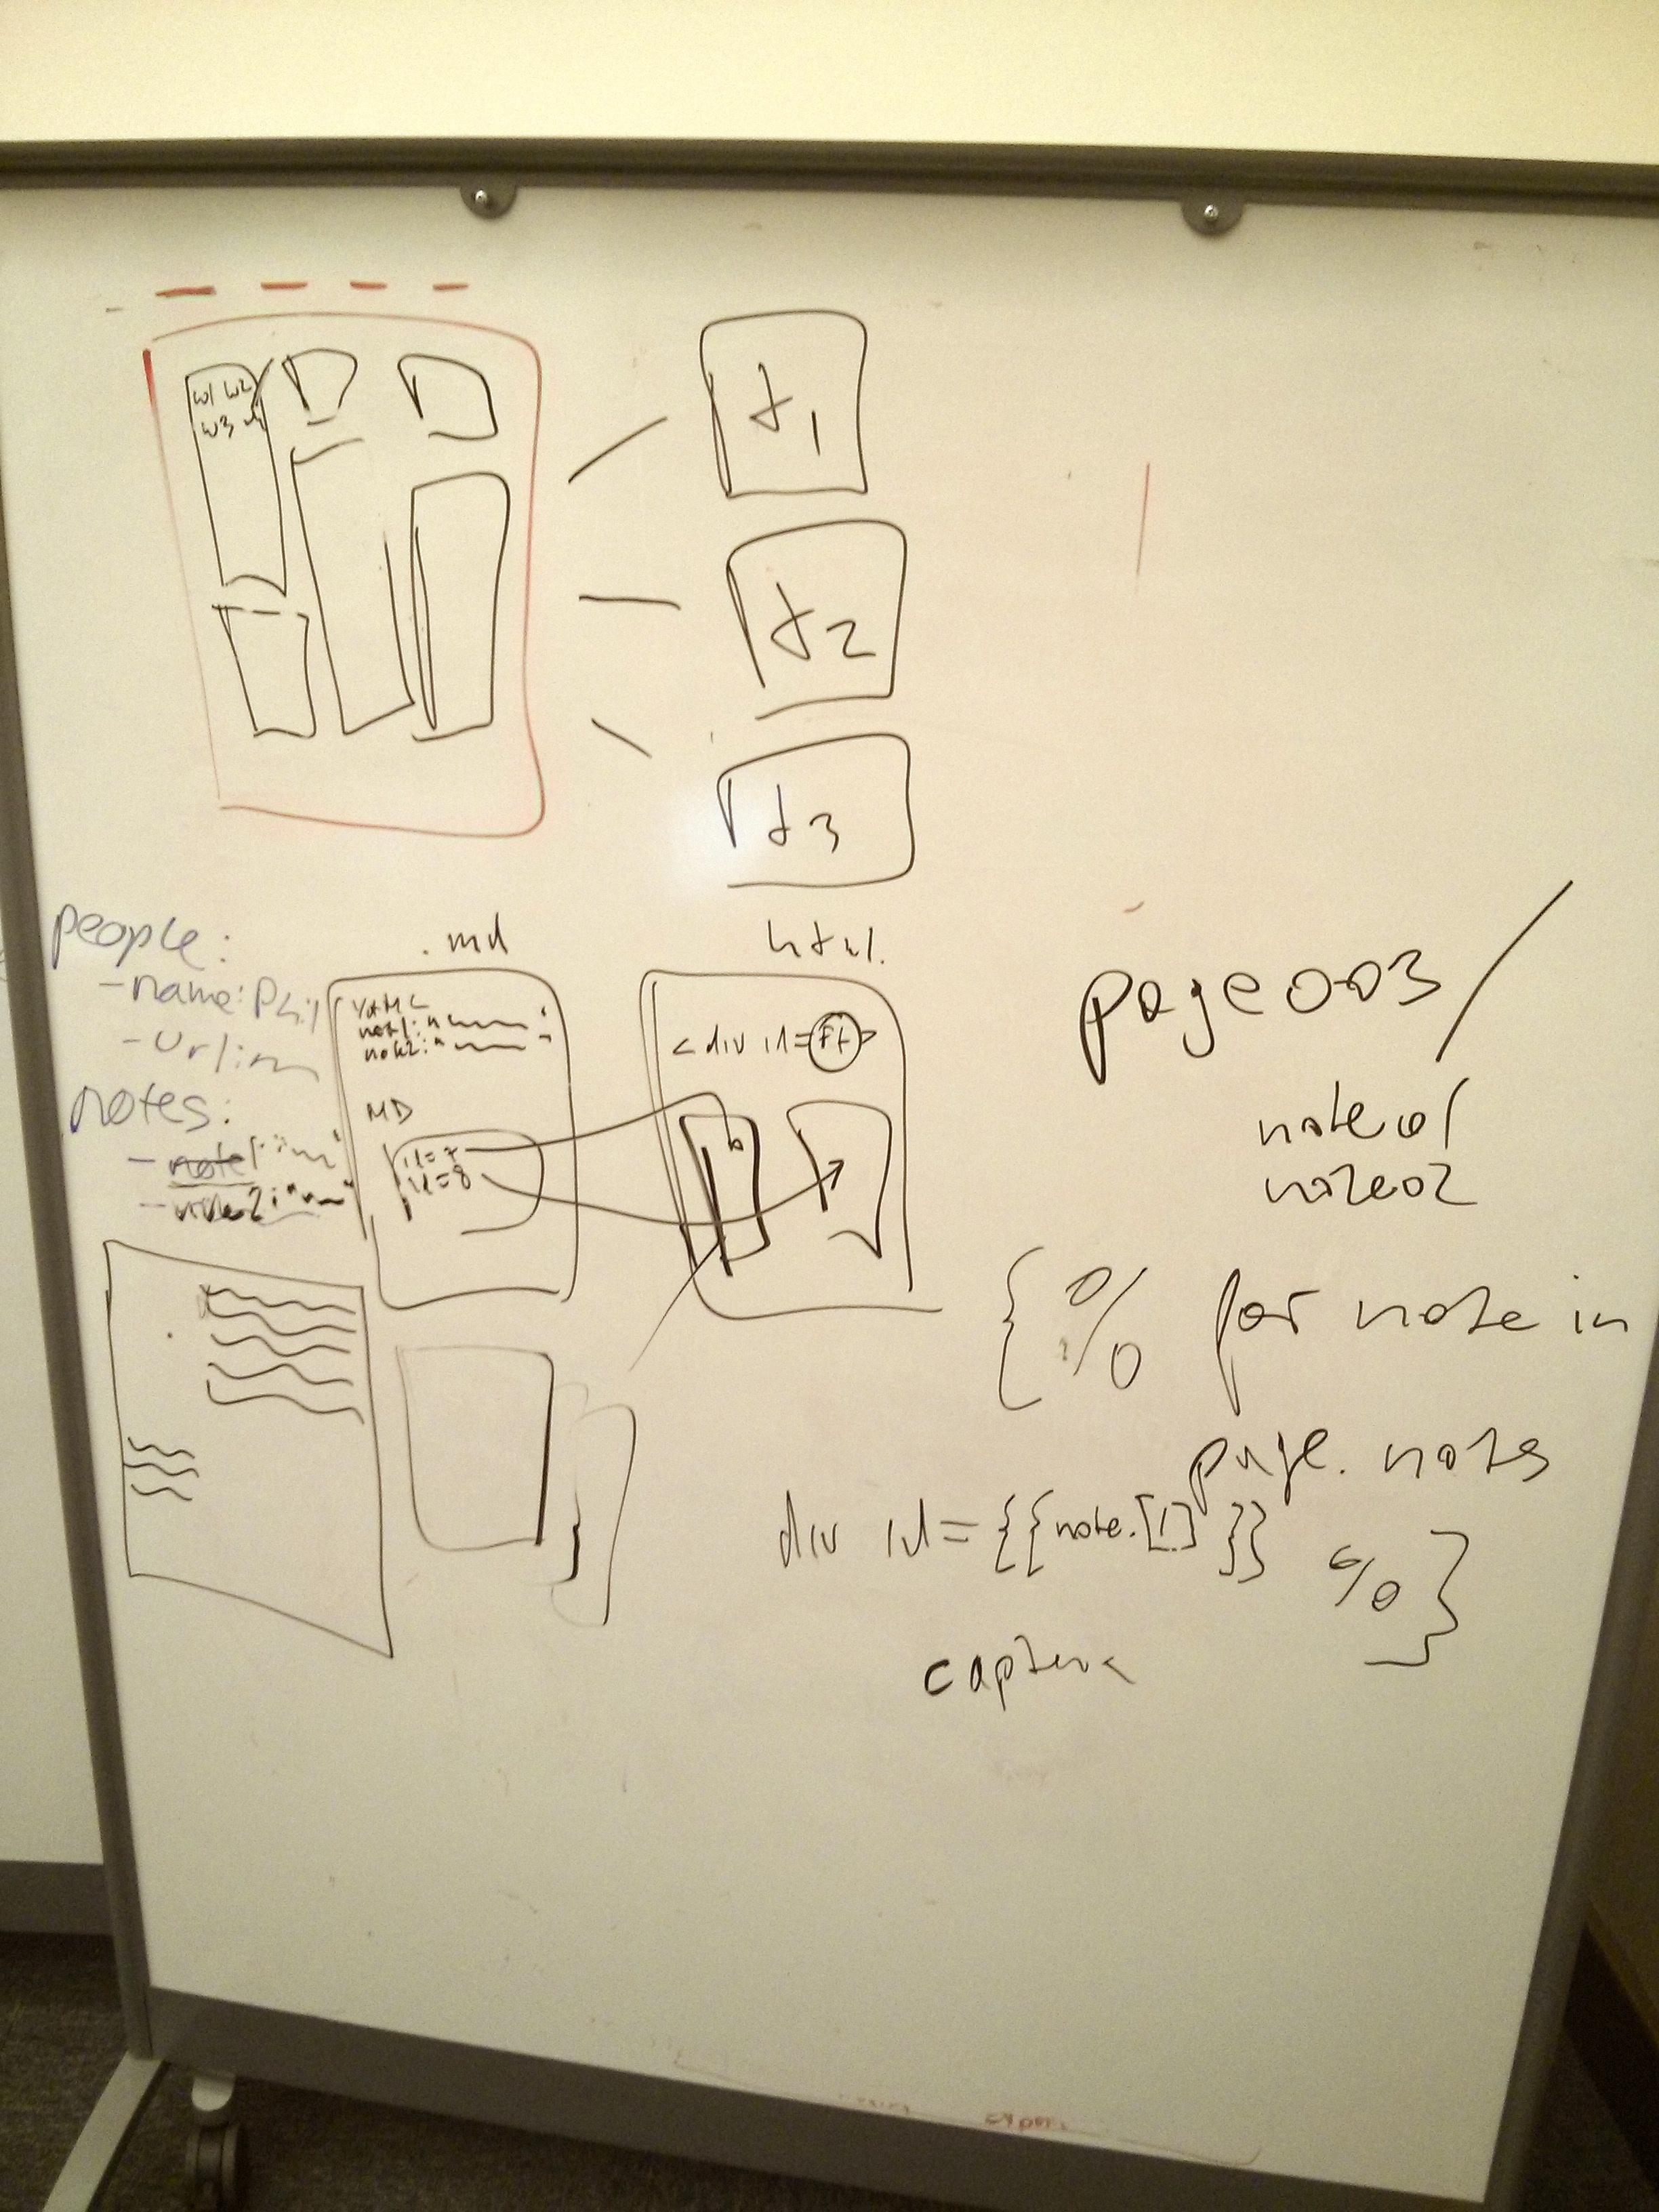 w1 w2
w3
t1
t2
t3
people:
- name: Phil
- url:
notes:
- note1:"
- note2:"
.md
YAML
note1:"
note2:"
MD
id=7
id=8
html.
<div id= >
page003/
note01
note02
{% for note in
page.notes
%}
div id={{note.[1] }}
capture